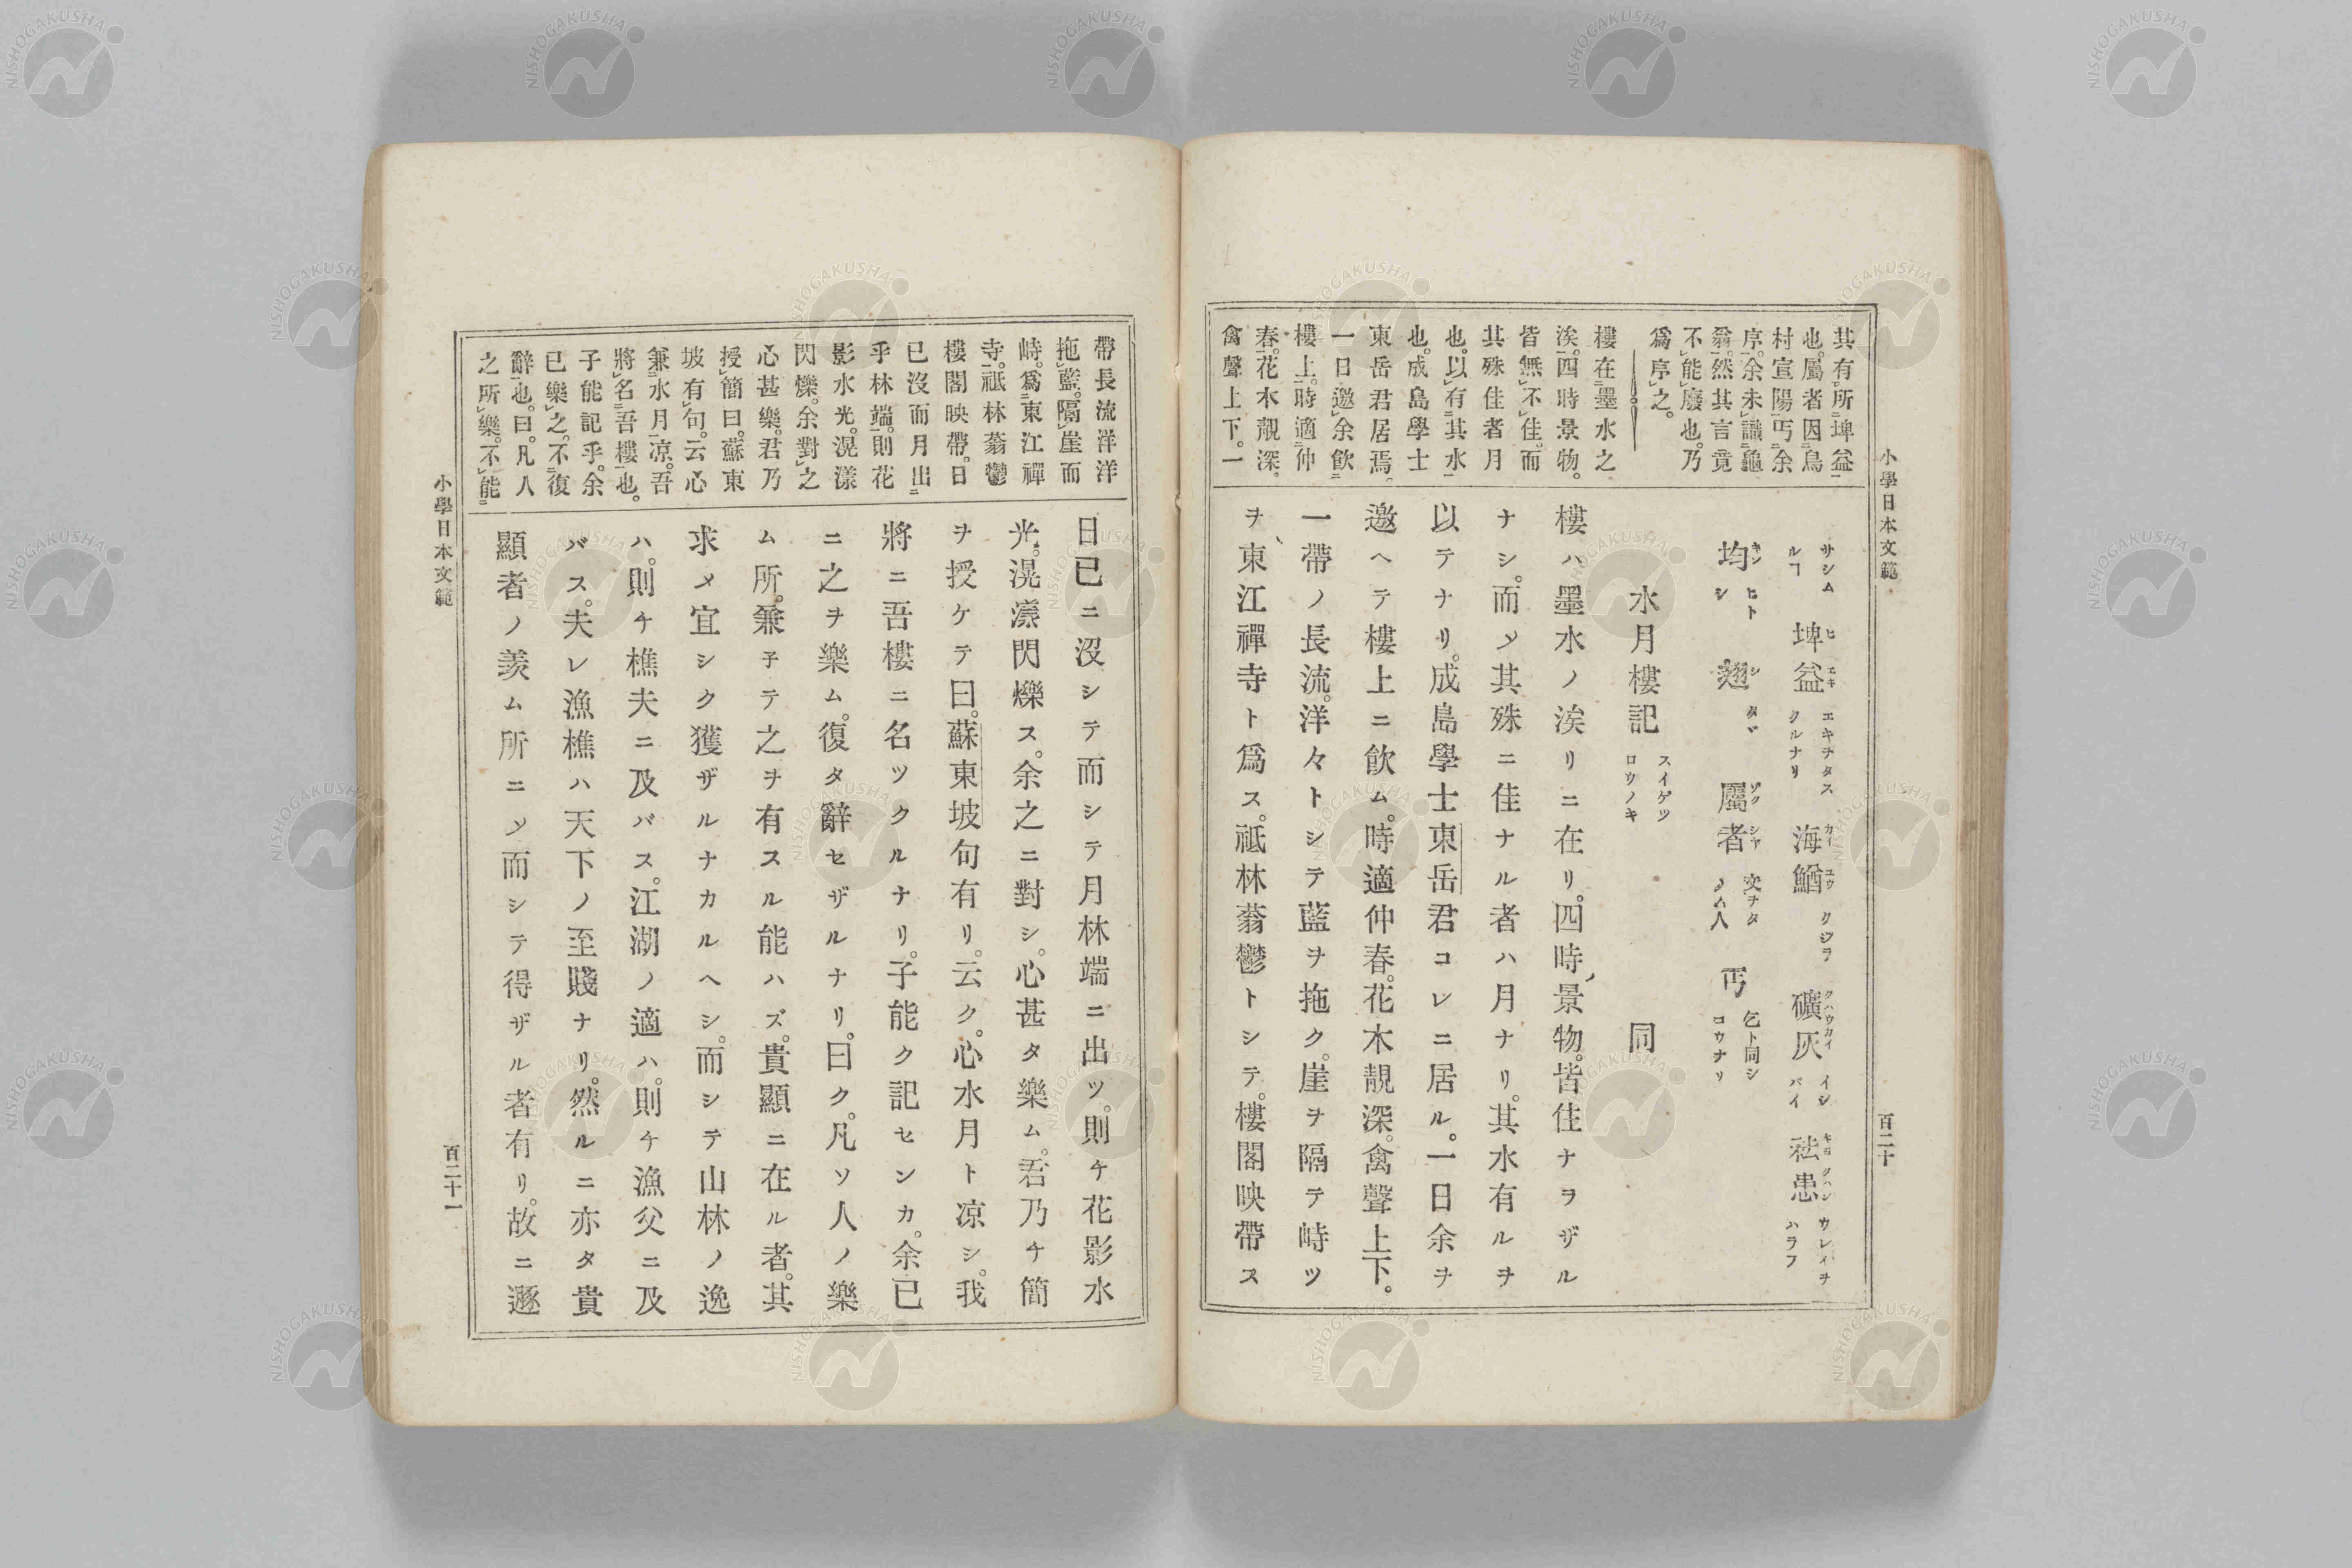 小學日本文範
百二十
其有所埤益
也。屬者因鳥
村宣陽丐余
序。余未識龜
翁。然其言竟
不能廢也。乃
爲序之。
樓在墨水之
涘。四時景物。
皆無不佳。而
其殊佳者月
也。以有其水
也。成島學士
東岳君居焉。
一日邀余飲
樓上。時適仲
春。花木靚深。
禽聲上下。一
サシム
ルヿ
埤益 ヒエキ
エキヲタス
クルナリ
海鰌 カイユウ
クジラ
礦灰 クハウカイ
イシ
バイ
祛患 キヨクハン
ウレイヲ
ハラフ
均 キン
ヒト
シ
翅 シ
タヾ
屬者 ゾクシヤ
丐
乞ト同シ
コウナリ
水月樓記
スイゲツ
ロウノキ
同
樓ハ墨水ノ涘リニ在リ。四時景物。皆佳ナヲザル
ナシ。而メ其殊ニ佳ナル者ハ月ナリ。其水有ルヲ
以テナリ。成島學士東岳君コレニ居ル。一日余ヲ
邀ヘテ樓上ニ飮ム。時適仲春。花木靚深。禽聲上下。
一帶ノ長流。洋々トシテ藍ヲ拖ク。崖ヲ隔テ峙ツ
ヲ東江禪寺ト爲ス。祗林蓊鬱トシテ。樓閣映帶ス
帶長流洋洋
拖藍。隔崖而
峙。爲東江禪
寺。祗林蓊鬱
樓閣映帶。日
已沒而月出
乎林端。則花
影水光。滉漾
閃爍。余對之
心甚樂。君乃
授簡曰。蘇東
坡有句。云心
兼水月凉。吾
將名吾樓也。
子能記乎。余
已樂之。不復
辭也。曰。凡人
之所樂。不能
日已ニ沒シテ而シテ月林端ニ出ツ。則チ花影水
光。滉瀁閃爍ス。余之ニ對シ。心甚タ樂ム。君乃チ簡
ヲ授ケテ曰。蘇東坡句有リ。云ク。心水月ト凉シ。我
將ニ吾樓ニ名ツクルナリ。子能ク記センカ。余已
ニ之ヲ樂ム。復タ辭セザルナリ。曰ク。凡ソ人ノ樂
ム所。兼子テ之ヲ有スル能ハズ。貴顯ニ在ル者。其
求メ宜シク獲ザルナカルヘシ。而シテ山林ノ逸
ハ。則チ樵夫ニ及バス。江湖ノ適ハ。則チ漁父ニ及
バス。夫レ漁樵ハ天下ノ至賤ナリ。然ルニ亦タ貴
顯者ノ羨ム所ニメ而シテ得ザル者有リ。故ニ遯
小學日本文範
百二十一